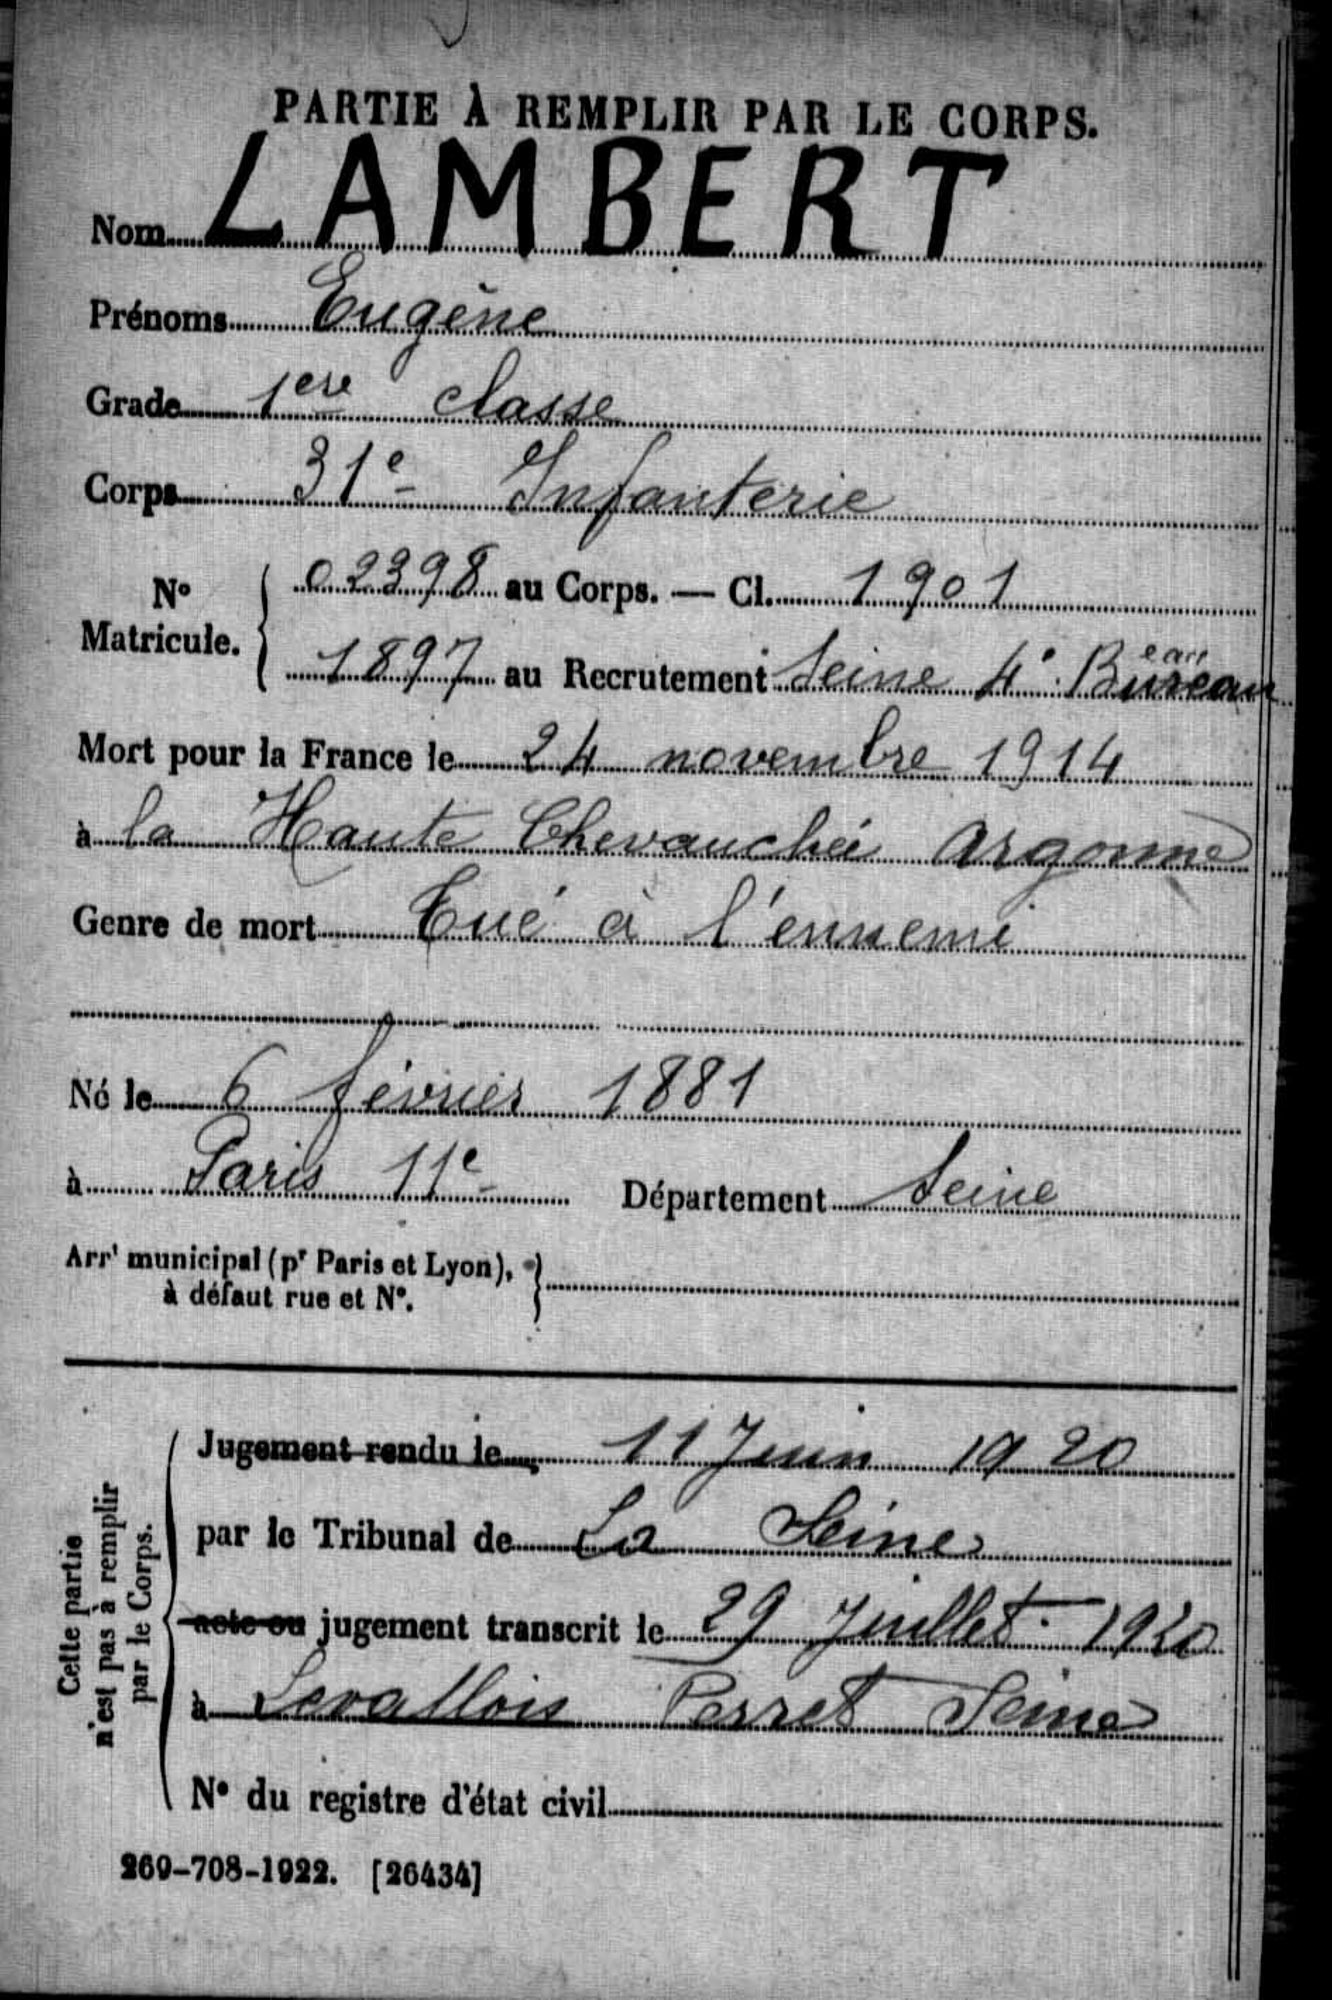 PARTIE À REMPLIR PAR LE CORPS.
Nom LAMBERT
Prénoms Eugène
Grade 1ere classe
Corps 31e Infanterie
N° Matricule. { 02398 au Corps. — Cl. 1901
1897 au Recrutement Seine 4e Bureau eau
Mort pour la France le 24 novembre 1914
à la Haute Chevauchée Argonne
Genre de mort Tué à l'ennemi
Né le 6 février 1881
à Paris 11e Département Seine
Arrt municipal (pr Paris et Lyon), à défaut rue et N°. }
Cette partie n'est pas à remplir par le Corps.
Jugement rendu le 11 Juin 1920
par le Tribunal de La Seine
acte ou jugement transcrit le 29 Juillet 1920
à Levallois Perret Seine
N° du registre d'état civil
269-708-1922. [26434]